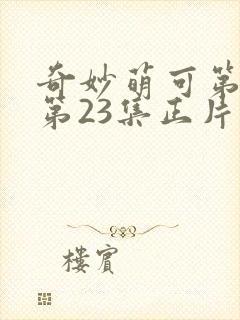 奇妙萌可第
第23集正片
楼賓